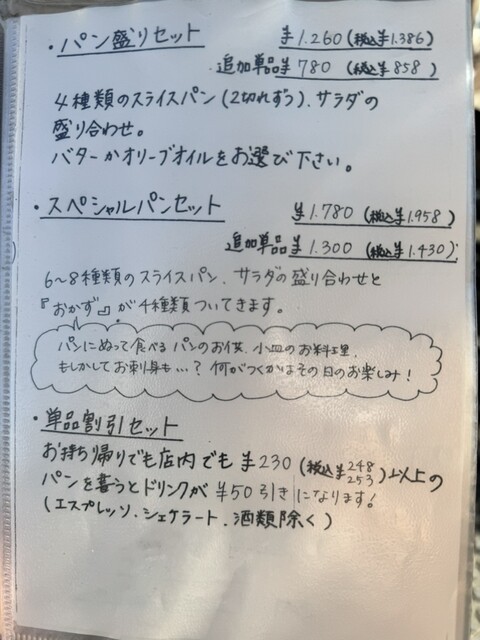 ・パン盛りセット ¥1.260(税込¥1.386)
・追加単品¥780(税込¥858)
4種類のスライスパン(2切れずつ)、サラダの
盛り合わせ。
バターかオリーブオイルをお選び下さい。
・スペシャルパンセット ¥1.780(税込¥1.958)
追加単品¥1.300(税込¥1.430)
6〜8種類のスライスパン、サラダの盛り合わせと
『おかず』が4種類ついてきます。
パンにぬって食べるパンのお供、小皿のお料理、
もしかしてお刺身も…?何がつくかはその日のお楽しみ!
・単品割引セット
お持ち帰りでも店内でも¥230(税込¥248 253)以上の
パンを買うとドリンクが¥50引きになります!
(エスプレッソ、シェケラート、酒類除く)